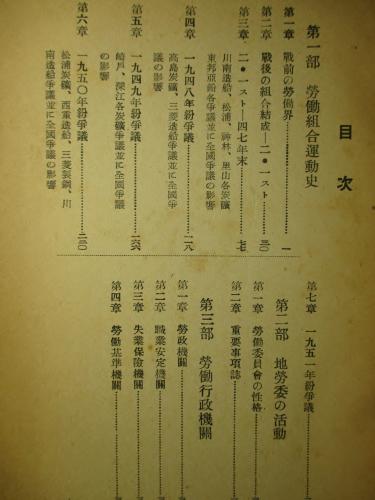 目次
第一部　勞働組合運動史
第一章　戰前の勞働界……一
第二章　戰後の組合結成—二・一スト……三〇
第三章　二・一スト—四七年末……七
川南造船、松浦、神林、里山各炭礦
東邦亞鉛各爭議並に全國爭議の影響
第四章　一九四八年紛爭議……一一八
高島炭礦、三菱造船爭議並に全國爭
議の影響
第五章　一九四九年紛爭議……一六六
崎戶、深江各炭礦爭議並に全國爭議
の影響
第六章　一九五〇年紛爭議……二三〇
松浦炭礦、西重造船、三菱製鋼、川
南造船爭議並に全國爭議の影響
第七章　一九五一年紛爭議……
第二部　地勞委の活動
第一章　勞働委員會の性格……
第二章　重要事項誌……
第三部　勞働行政機關
第一章　勞政機關……
第二章　職業安定機關……
第三章　失業保險機關……
第四章　勞働基準機關……